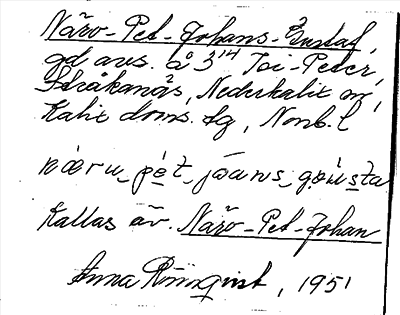 Näro-Pet-Johans-Gustaf,
gd avs. å 3¹⁴ Toi-Peter,
Stråkanäs, Nederkalix sn,
Kalix doms. sg, Norrb. l
næru_ pèt_ jòans_ gusta
Kallas äv. Näro-Pet-Johan
Anna Rönnqvist, 1951